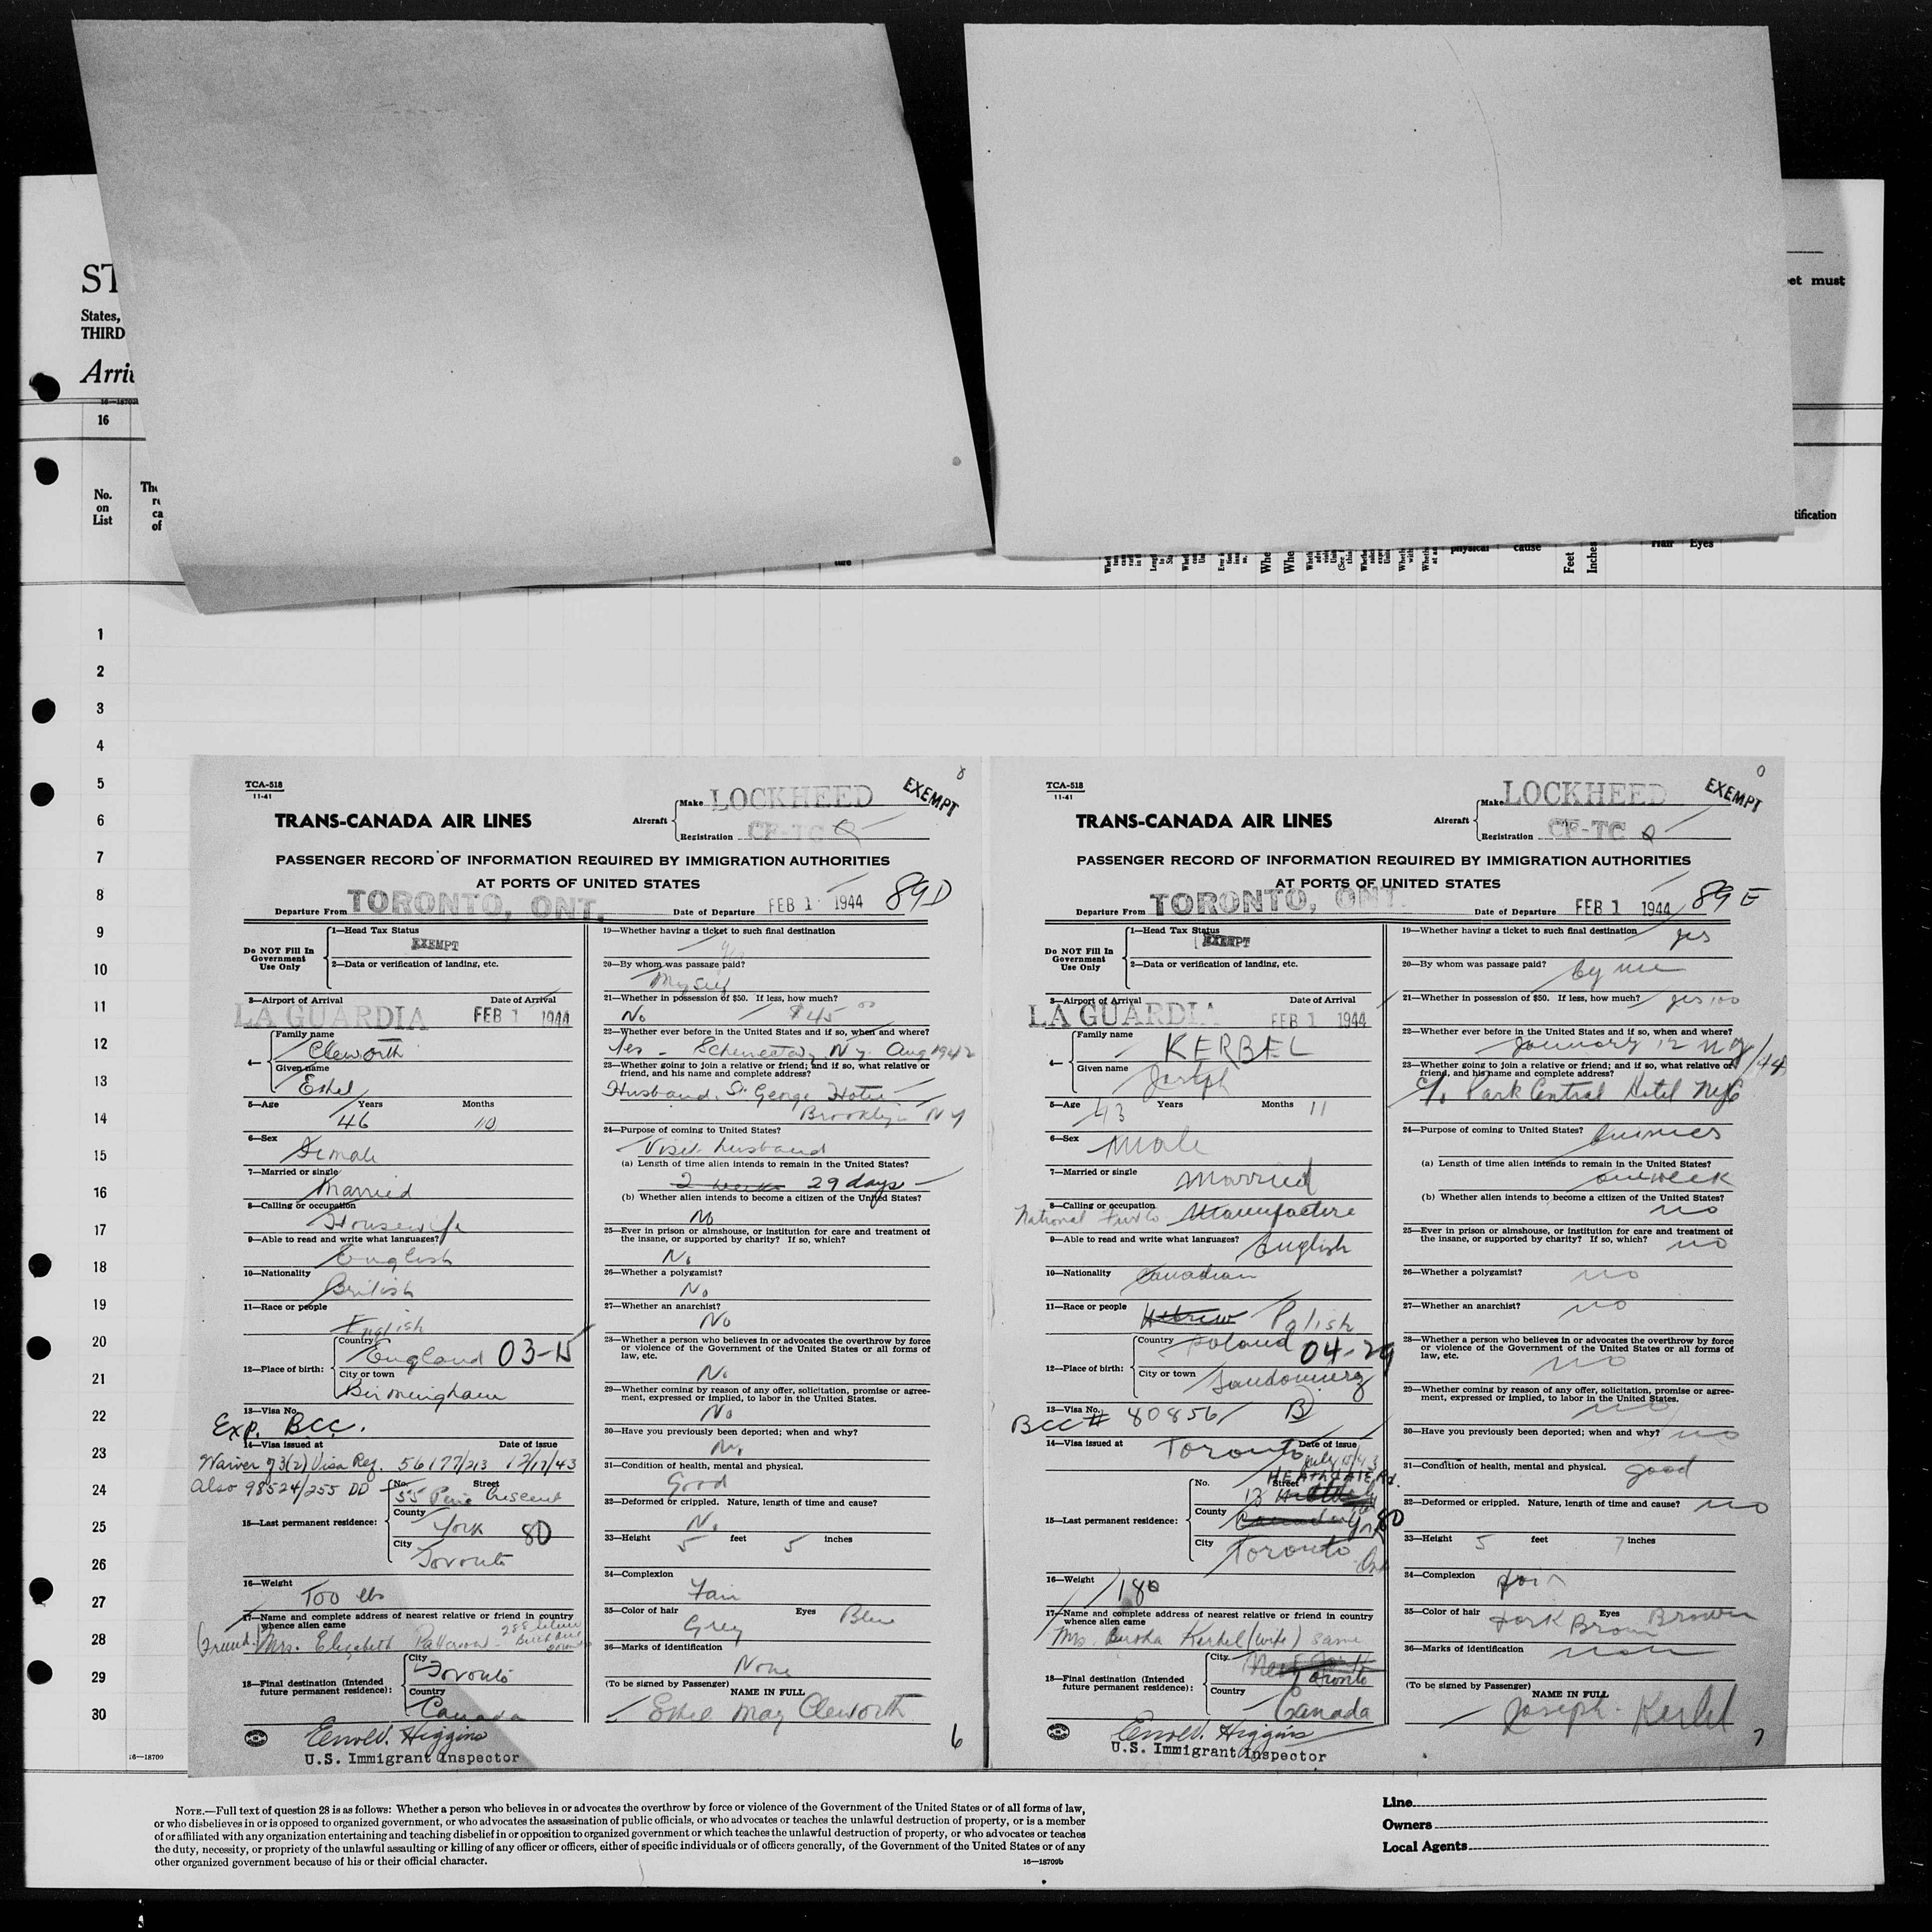 ST
States,
THIRD
Arri
et must
16
No.
on
List
tification
physical cause Feet Inches Hair Eyes
1
2
3
4
5
6
7
8
9
10
11
12
13
14
15
16
17
18
19
20
21
22
23
24
25
26
27
28
29
30
16—18709
TCA-518
11-41
EXEMPT
TRANS-CANADA AIR LINES
Aircraft
Make LOCKHEED
Registration CF-TC Q
PASSENGER RECORD OF INFORMATION REQUIRED BY IMMIGRATION AUTHORITIES
AT PORTS OF UNITED STATES
89D
Departure From TORONTO, ONT. Date of Departure FEB 1 1944
Do NOT Fill In
Government
Use Only
1—Head Tax Status
EXEMPT
2—Data or verification of landing, etc.
3—Airport of Arrival Date of Arrival
LA GUARDIA FEB 1 1944
4—
Family name
Cleworth
Given name
Ethel
5—Age Years Months
46 10
6—Sex
Female
7—Married or single
Married
8—Calling or occupation
Housewife
9—Able to read and write what languages?
English
10—Nationality
British
11—Race or people
English
12—Place of birth:
Country
England 03-15
City or town
Birmingham
13—Visa No.
Exp. BCC.
14—Visa issued at Date of issue
Waiver of 3(2) Visa Req. 56177/213 12/17/43
Also 98524/255 DD
15—Last permanent residence:
No. Street
55 Pine Crescent
County
York 80
City
Toronto
16—Weight
100 lbs
17—Name and complete address of nearest relative or friend in country
whence alien came
(Friend) Mrs. Elizabeth Patterson
18—Final destination (Intended
future permanent residence):
City
Toronto
Country
Canada
Errol V. Higgins
U.S. Immigrant Inspector
19—Whether having a ticket to such final destination
yes
20—By whom was passage paid?
Myself
21—Whether in possession of $50. If less, how much?
No $45 00
22—Whether ever before in the United States and if so, when and where?
Yes - Schenectady N.Y. Aug 1942
23—Whether going to join a relative or friend; and if so, what relative or
friend, and his name and complete address?
Husband. St George Hotel
Brooklyn NY
24—Purpose of coming to United States?
Visit husband
(a) Length of time alien intends to remain in the United States?
2 weeks 29 days
(b) Whether alien intends to become a citizen of the United States?
No
25—Ever in prison or almshouse, or institution for care and treatment of
the insane, or supported by charity? If so, which?
No
26—Whether a polygamist?
No
27—Whether an anarchist?
No
28—Whether a person who believes in or advocates the overthrow by force
or violence of the Government of the United States or all forms of
law, etc.
No
29—Whether coming by reason of any offer, solicitation, promise or agree-
ment, expressed or implied, to labor in the United States.
No
30—Have you previously been deported; when and why?
No
31—Condition of health, mental and physical.
Good
32—Deformed or crippled. Nature, length of time and cause?
No
33—Height 5 feet 5 inches
34—Complexion
Fair
35—Color of hair Eyes Blue
Grey
36—Marks of identification
None
(To be signed by Passenger)
NAME IN FULL
Ethel May Cleworth
6
TCA-518
11-41
EXEMPT
TRANS-CANADA AIR LINES
Aircraft
Make LOCKHEED
Registration CF-TC Q
PASSENGER RECORD OF INFORMATION REQUIRED BY IMMIGRATION AUTHORITIES
AT PORTS OF UNITED STATES
89 E
Departure From TORONTO, ONT. Date of Departure FEB 1 1944
Do NOT Fill In
Government
Use Only
1—Head Tax Status
EXEMPT
2—Data or verification of landing, etc.
3—Airport of Arrival Date of Arrival
LA GUARDIA FEB 1 1944
4—
Family name
KERBEL
Given name
Joseph
5—Age 43 Years Months 11
6—Sex
Male
7—Married or single
Married
8—Calling or occupation
National Manufacture
9—Able to read and write what languages?
English
10—Nationality Canadian
11—Race or people
Hebrew Polish
12—Place of birth:
Country
Poland 04-29
City or town
Sandomierz
13—Visa No.
BCC # 80856 B
14—Visa issued at Toronto Date of issue
July 15/43
15—Last permanent residence:
No. Street
13 HEATHGATE Rd.
County
York 80
City
Toronto Ont
16—Weight
180
17—Name and complete address of nearest relative or friend in country
whence alien came
Mrs. Bertha Kerbel (wife) same
18—Final destination (Intended
future permanent residence):
City
Toronto
Country
Canada
Errol V. Higgins
U.S. Immigrant Inspector
19—Whether having a ticket to such final destination
yes
20—By whom was passage paid?
by me
21—Whether in possession of $50. If less, how much? yes 100
22—Whether ever before in the United States and if so, when and where?
January 12 NY /44
23—Whether going to join a relative or friend; and if so, what relative or
friend, and his name and complete address?
c/o Park Central Hotel NYC
24—Purpose of coming to United States? Business
(a) Length of time alien intends to remain in the United States?
one week
(b) Whether alien intends to become a citizen of the United States?
no
25—Ever in prison or almshouse, or institution for care and treatment of
the insane, or supported by charity? If so, which? no
26—Whether a polygamist? no
27—Whether an anarchist? no
28—Whether a person who believes in or advocates the overthrow by force
or violence of the Government of the United States or all forms of
law, etc. no
29—Whether coming by reason of any offer, solicitation, promise or agree-
ment, expressed or implied, to labor in the United States.
no
30—Have you previously been deported; when and why? no
31—Condition of health, mental and physical. good
32—Deformed or crippled. Nature, length of time and cause? no
33—Height 5 feet 7 inches
34—Complexion fair
35—Color of hair Dark Brown Eyes Brown
36—Marks of identification non
(To be signed by Passenger)
NAME IN FULL
Joseph Kerbel
7
NOTE.—Full text of question 28 is as follows: Whether a person who believes in or advocates the overthrow by force or violence of the Government of the United States or of all forms of law,
or who disbelieves in or is opposed to organized government, or who advocates the assassination of public officials, or who advocates or teaches the unlawful destruction of property, or is a member
of or affiliated with any organization entertaining and teaching disbelief in or opposition to organized government or which teaches the unlawful destruction of property, or who advocates or teaches
the duty, necessity, or propriety of the unlawful assaulting or killing of any officer or officers, either of specific individuals or of officers generally, of the Government of the United States or of any
other organized government because of his or their official character.
16—18709b
Line
Owners
Local Agents